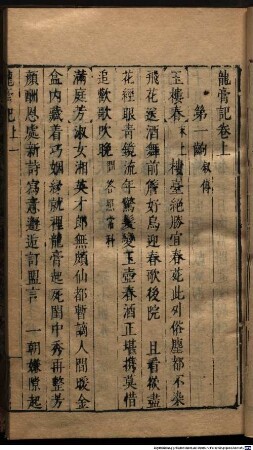 龍膏記卷上
第一齣 叙傳
玉樓春 末上 樓臺絶勝宜春苑此外俗塵都不染
飛花送酒舞前簷好鳥迎春歌後院 且看欲盡
花經眼青鏡流年驚鬢變玉壺春酒正堪携莫惜
追歡歌吹晚 問答照常科
滿庭芳淑女湘英才郎無頗仙都暫謫人間煖金
盒内藏着巧姻緣就裡龍膏起死閨中秀再整芳
顏酬恩處新詩寫意邂逅訂盟言 一朝嫌隙起
龍膏記 上 一